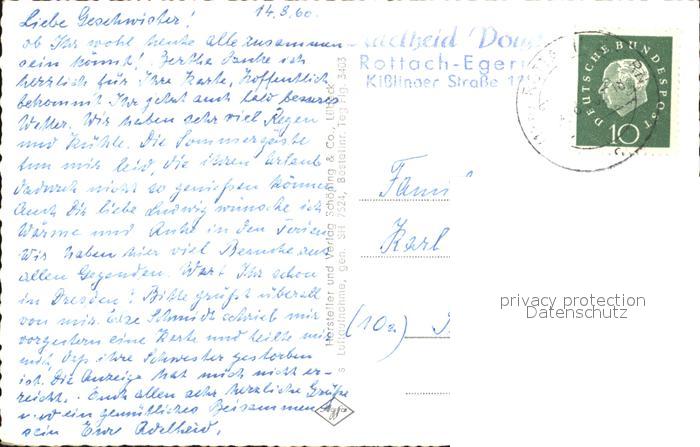 14.8.60.
Liebe Geschwister!
ob Ihr wohl heute alle zusammen
sein könnt? Bertha danke ich
herzlich für Ihre Karte, hoffentlich
bekommt Ihr jetzt auch bald besseres
Wetter. Wir haben sehr viel Regen
und Kühle. Die Sommergäste
tun mir leid, die ihren Urlaub
dadurch nicht so geniessen können
Auch Dir liebe Ludwig wünsche ich
Wärme und Ruhe in den Ferien
Wir haben hier viel Besuche aus
allen Gegenden. Wart Ihr schon
in Dresden? Bitte grüßt überall
von mir. Schmidt schrieb mir
vorgestern eine Karte und teilte mir
mit, daß ihre Schwester gestorben
ist. Die Anzeige hat mich nicht er-
reicht. Euch allen sehr herzliche Grüße
u. ein gemütliches Beisammen
sein Eure Adelheid.
Adelheid
Rottach-Egern
Kißlinger Straße
Hersteller und Verlag Schöning & Co., Lübeck
Luftaufnahme, gen. SH 7524, Bestellnr. Teg Flg. 3403
DEUTSCHE BUNDESPOST
10
Fami
Karl
(10a)
privacy protection
Datenschutz
Agfa